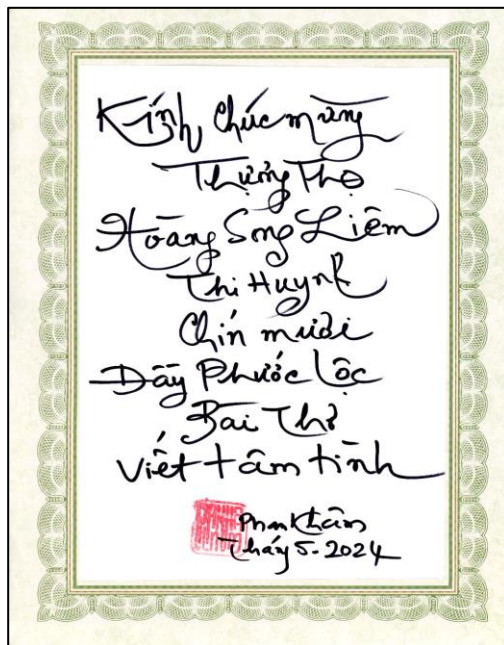 Kính Chúc mừng
Thượng Thọ
Hoàng Song Liêm
Thi Huynh
Chín mươi
Đầy Phước Lộc
Bài Thơ
Viết tâm tình
Phan Khâm
Tháng 5-2024